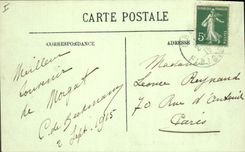 I
CARTE POSTALE
CORRESPONDANCE
ADRESSE
5c
Meilleur
souvenir
de Morgat
C. de
2 Sept. 1915
Madame
Léonce Reynaud
70 Rue d'Auteuil
Paris